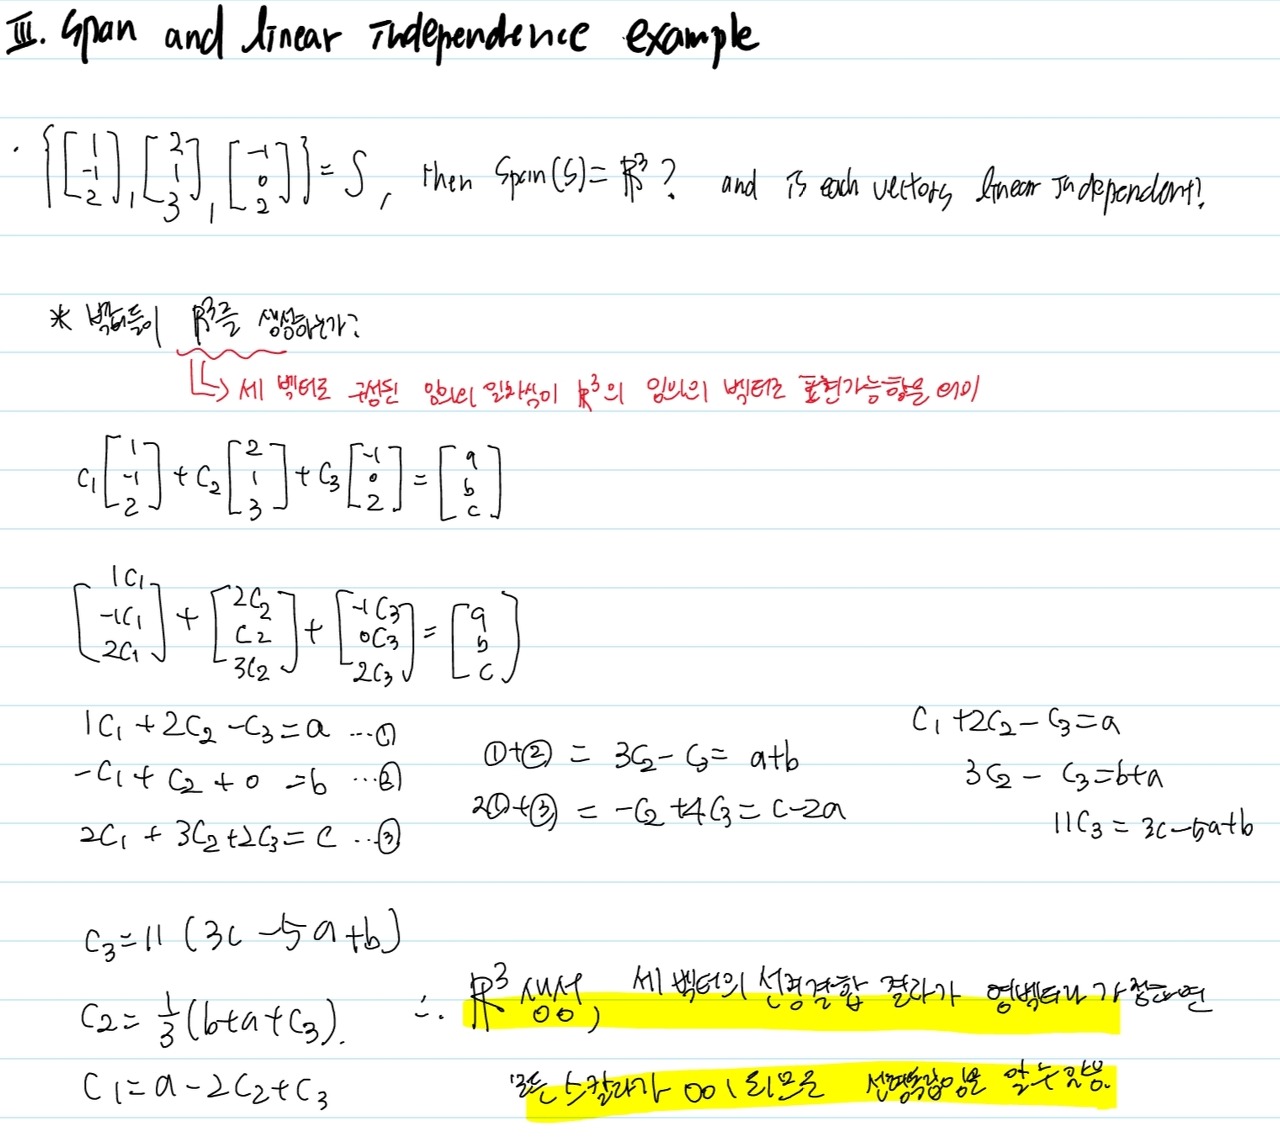 III. Span and linear independence example
· {[1 -1 2], [2 1 3], [-1 0 2]} = S, then Span(S) = ℝ³? and is each vectors linear independent?
* 벡터들이 ℝ³를 생성하는가?
↳ 세 벡터로 구성된 임의의 일차식이 ℝ³의 임의의 벡터로 표현가능함을 의미
C₁[1 -1 2] + C₂[2 1 3] + C₃[-1 0 2] = [a b c]
[1C₁ -1C₁ 2C₁] + [2C₂ C₂ 3C₂] + [-1C₃ 0C₃ 2C₃] = [a b c]
1C₁ + 2C₂ - C₃ = a ...①
-C₁ + C₂ + 0 = b ...②
2C₁ + 3C₂ + 2C₃ = C ...③
①+② = 3C₂ - C₃ = a+b
2①+③ = -C₂ + 4C₃ = C-2a
C₁ + 2C₂ - C₃ = a
3C₂ - C₃ = b+a
11C₃ = 3c-5a+b
C₃ = 11 (3c - 5a + b)
C₂ = 1/3 (b+a+C₃).
C₁ = a - 2C₂ + C₃
∴ ℝ³ 생성, 세 벡터의 선형결합 결과가 영벡터라 가정하면
모든 스칼라가 0이 되므로 선형독립임을 알 수 있음.